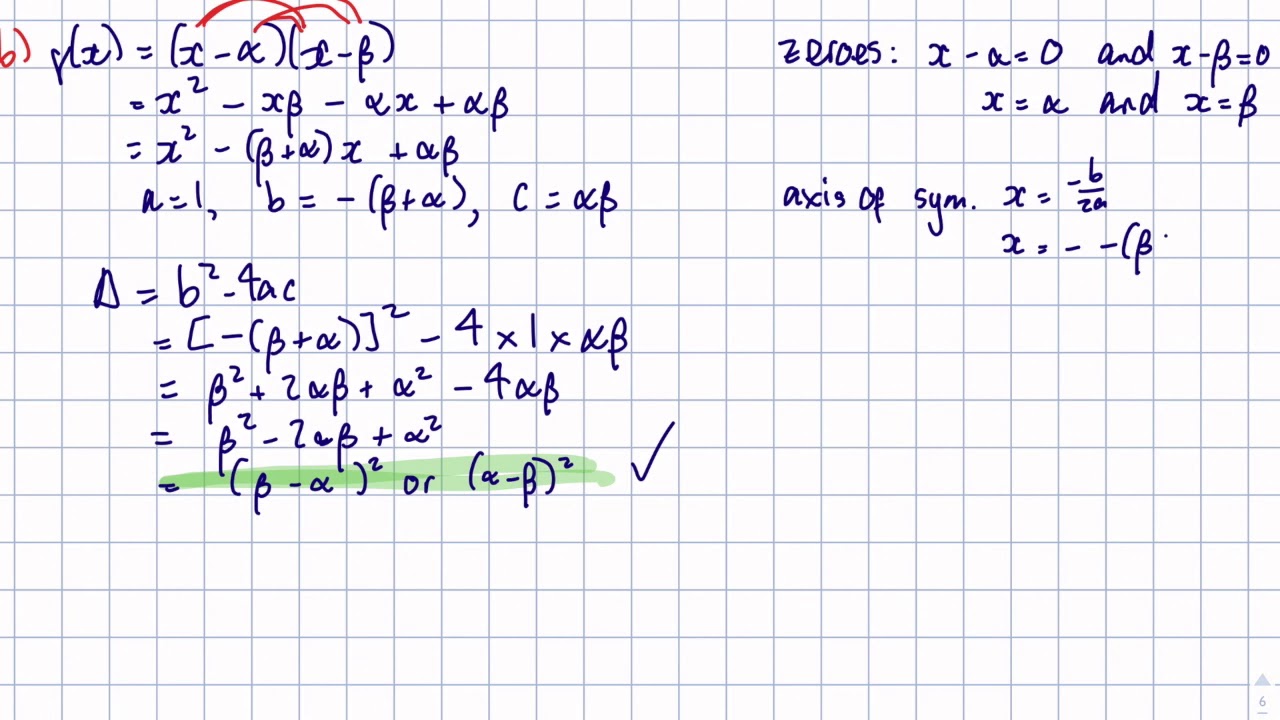 b) p(x) = (x - α)(x - β)
= x² - xβ - αx + αβ
= x² - (β+α)x + αβ
a=1, b = -(β+α), c = αβ
Δ = b² - 4ac
= [-(β+α)]² - 4 × 1 × αβ
= β² + 2αβ + α² - 4αβ
= β² - 2αβ + α²
= (β - α)² or (α - β)² ✓
zeroes: x - α = 0 and x - β = 0
x = α and x = β
axis of sym. x = -b/2a
x = - -(β
6